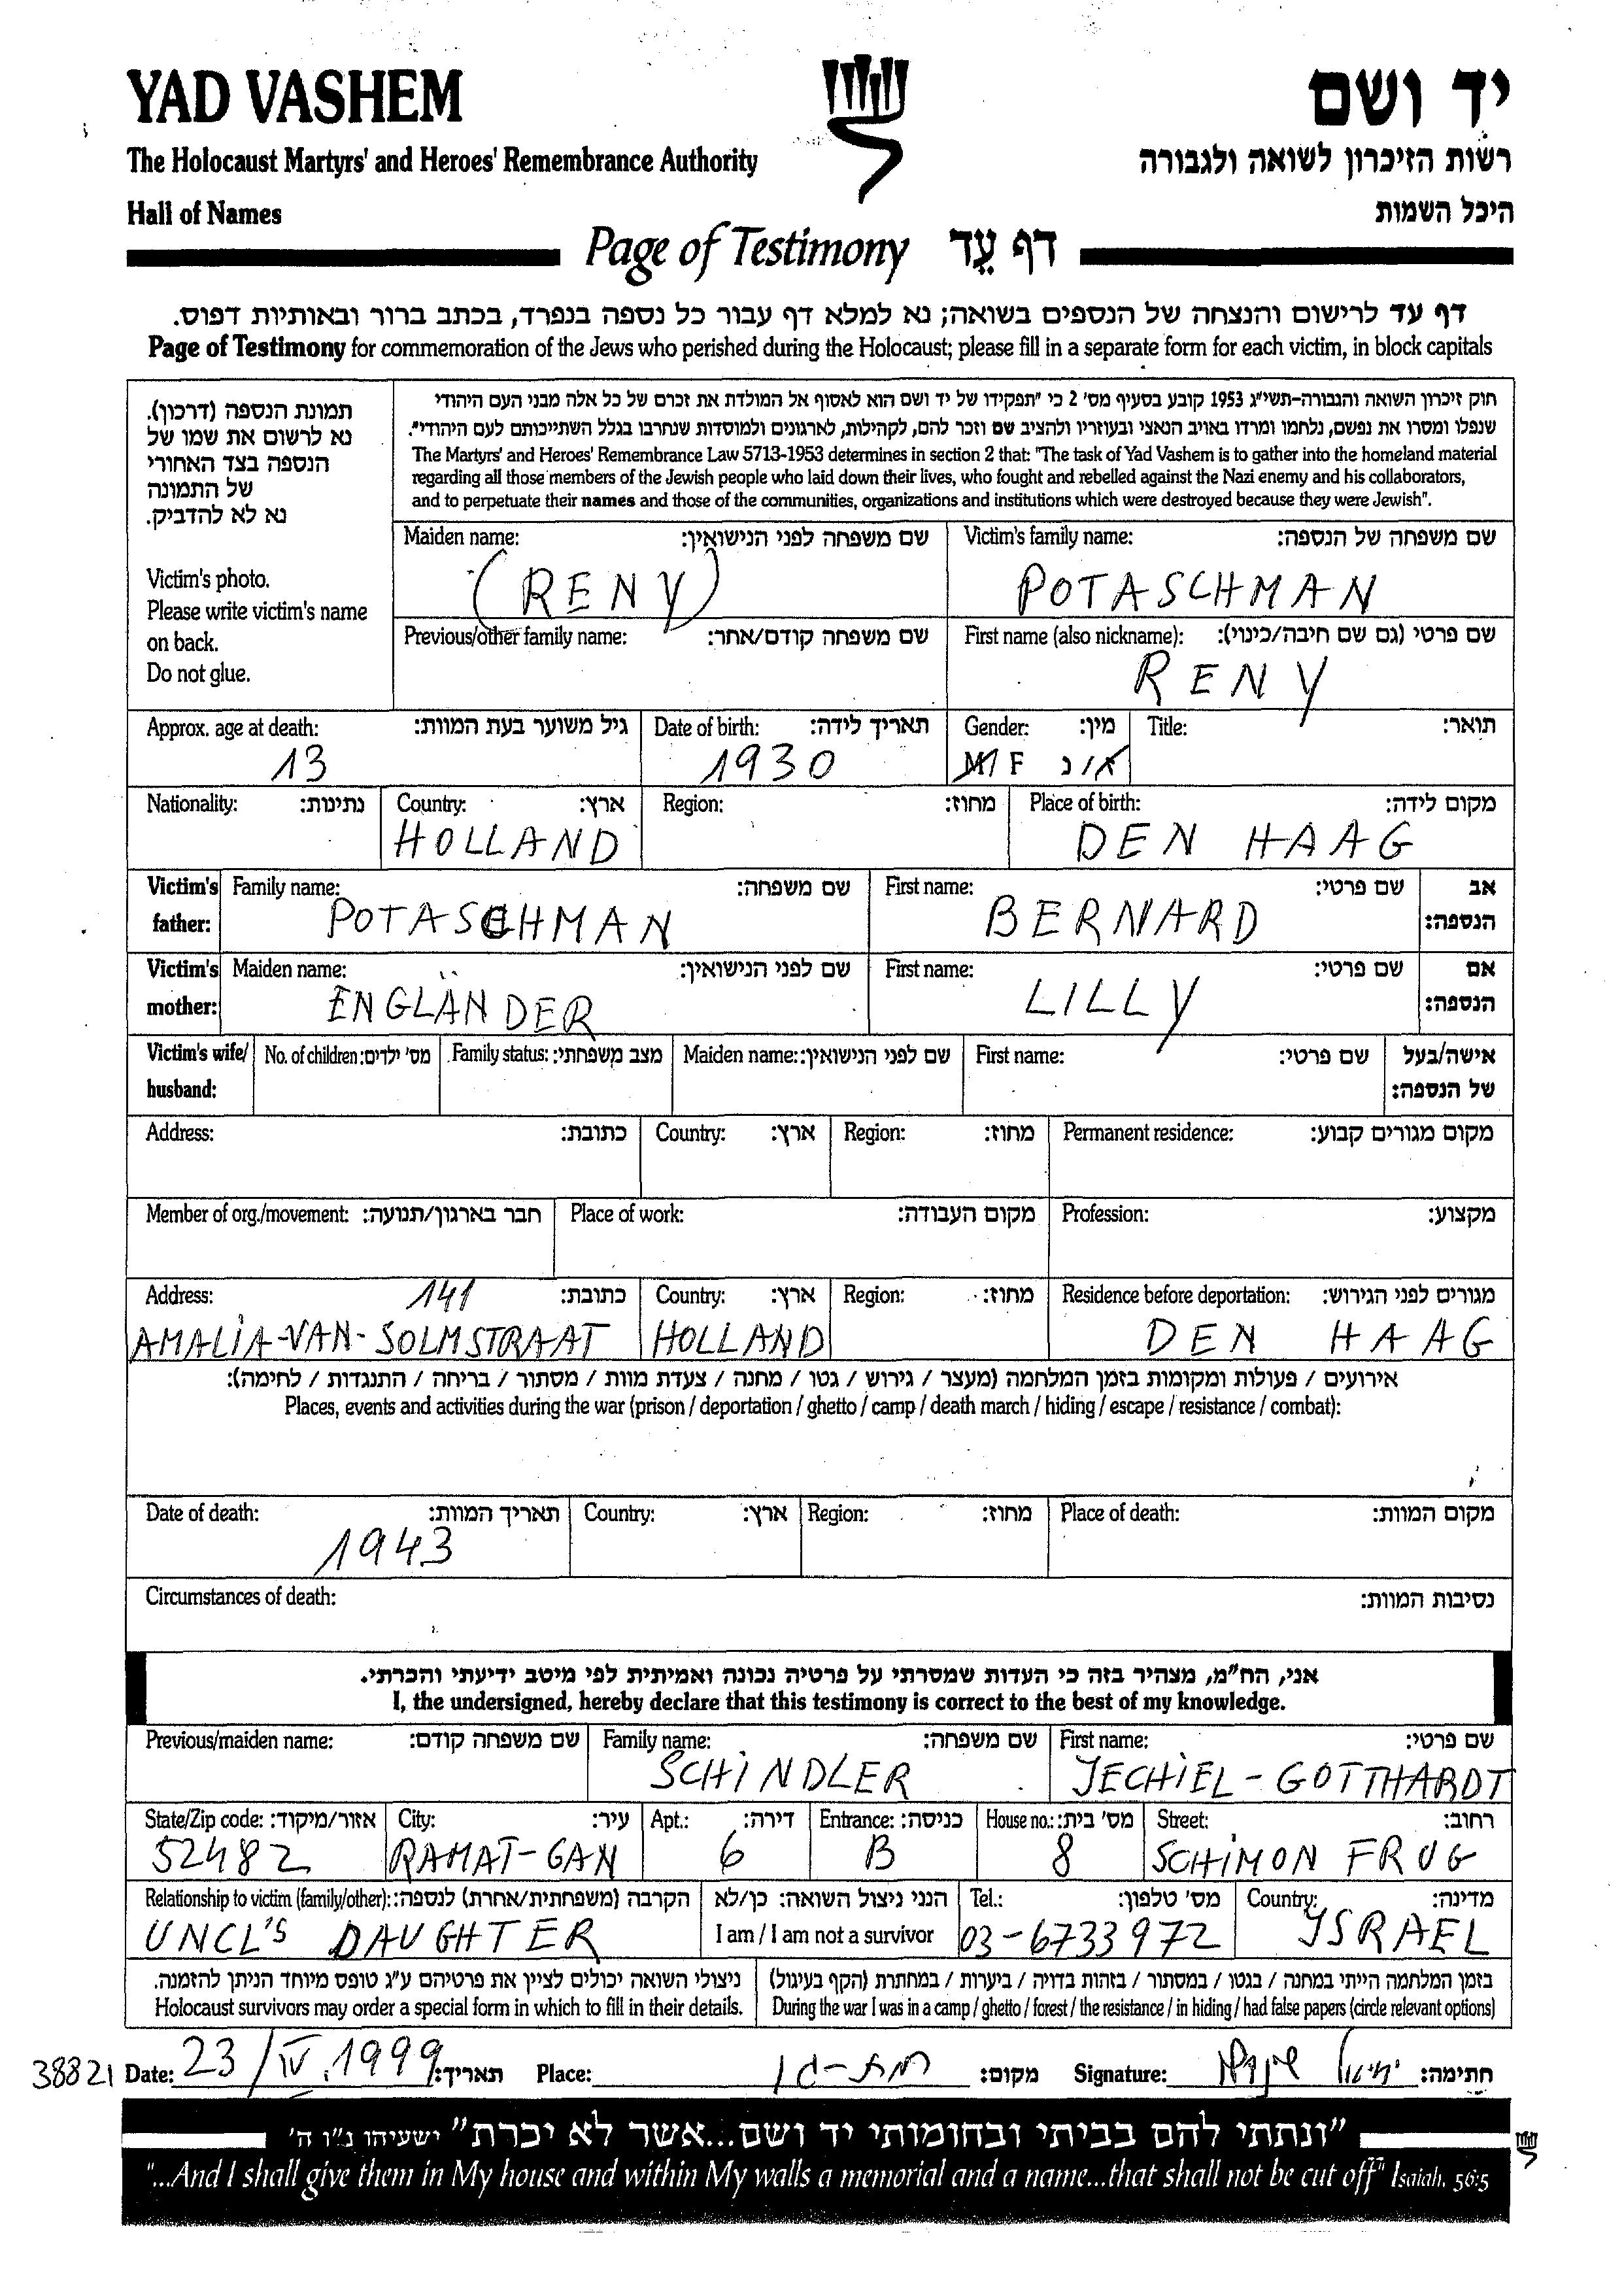 YAD VASHEM
יד ושם
The Holocaust Martyrs' and Heroes' Remembrance Authority
רשות הזיכרון לשואה ולגבורה
Hall of Names
היכל השמות
Page of Testimony דף עֵד
דף עד לרישום והנצחה של הנספים בשואה; נא למלא דף עבור כל נספה בנפרד, בכתב ברור ובאותיות דפוס.
Page of Testimony for commemoration of the Jews who perished during the Holocaust; please fill in a separate form for each victim, in block capitals
תמונת הנספה (דרכון).
נא לרשום את שמו של
הנספה בצד האחורי
של התמונה
נא לא להדביק.
Victim's photo.
Please write victim's name
on back.
Do not glue.
חוק זיכרון השואה והגבורה-תשי"ג 1953 קובע בסעיף מס' 2 כי "תפקידו של יד ושם הוא לאסוף אל המולדת את זכרם של כל אלה מבני העם היהודי
שנפלו ומסרו את נפשם, נלחמו ומרדו באויב הנאצי ובעוזריו ולהציב שם וזכר להם, לקהילות, לארגונים ולמוסדות שנחרבו בגלל השתייכותם לעם היהודי".
The Martyrs' and Heroes' Remembrance Law 5713-1953 determines in section 2 that: "The task of Yad Vashem is to gather into the homeland material
regarding all those members of the Jewish people who laid down their lives, who fought and rebelled against the Nazi enemy and his collaborators,
and to perpetuate their names and those of the communities, organizations and institutions which were destroyed because they were Jewish".
Maiden name: שם משפחה לפני הנישואין: Victim's family name: שם משפחה של הנספה:
(RENY) POTASCHMAN
Previous/other family name: שם משפחה קודם/אחר: First name (also nickname): שם פרטי (גם שם חיבה/כינוי):
RENY
Approx. age at death: גיל משוער בעת המוות: Date of birth: תאריך לידה: Gender: מין: Title: תואר:
13 1930 M/F ז/נ
Nationality: נתינות: Country: ארץ: Region: מחוז: Place of birth: מקום לידה:
HOLLAND DEN HAAG
Victim's father: Family name: שם משפחה: First name: שם פרטי: אב הנספה:
POTASCHMAN BERNARD
Victim's mother: Maiden name: שם לפני הנישואין: First name: שם פרטי: אם הנספה:
ENGLÄNDER LILLY
Victim's wife/ husband: No. of children: מס' ילדים: Family status: מצב משפחתי: Maiden name: שם לפני הנישואין: First name: שם פרטי: אישה/בעל של הנספה:
Address: כתובת: Country: ארץ: Region: מחוז: Permanent residence: מקום מגורים קבוע:
Member of org./movement: חבר בארגון/תנועה: Place of work: מקום העבודה: Profession: מקצוע:
Address: 141 כתובת: Country: ארץ: Region: מחוז: Residence before deportation: מגורים לפני הגירוש:
AMALIA-VAN-SOLMSTRAAT HOLLAND DEN HAAG
אירועים / פעולות ומקומות בזמן המלחמה (מעצר / גירוש / גטו / מחנה / צעדת מוות / מסתור / בריחה / התנגדות / לחימה):
Places, events and activities during the war (prison / deportation / ghetto / camp / death march / hiding / escape / resistance / combat):
Date of death: תאריך המוות: Country: ארץ: Region: מחוז: Place of death: מקום המוות:
1943
Circumstances of death: נסיבות המוות:
אני, הח"מ, מצהיר בזה כי העדות שמסרתי על פרטיה נכונה ואמיתית לפי מיטב ידיעתי והכרתי.
I, the undersigned, hereby declare that this testimony is correct to the best of my knowledge.
Previous/maiden name: שם משפחה קודם: Family name: שם משפחה: First name: שם פרטי:
SCHINDLER JECHIEL-GOTTHARDT
State/Zip code: אזור/מיקוד: City: עיר: Apt.: דירה: Entrance: כניסה: House no.: מס' בית: Street: רחוב:
52482 RAMAT-GAN 6 B 8 SCHIMON FRUG
Relationship to victim (family/other): הקרבה (משפחתית/אחרת) לנספה: הנני ניצול השואה: כן/לא Tel.: מס' טלפון: Country: מדינה:
UNCL'S DAUGHTER I am / I am not a survivor 03-6733972 ISRAEL
ניצולי השואה יכולים לציין את פרטיהם ע"ג טופס מיוחד הניתן להזמנה.
Holocaust survivors may order a special form in which to fill in their details.
בזמן המלחמה הייתי במחנה / בגטו / במסתור / בזהות בדויה / ביערות / במחתרת (הקף בעיגול)
During the war I was in a camp / ghetto / forest / the resistance / in hiding / had false papers (circle relevant options)
38821 Date: 23/IV.1999 תאריך: Place: רמת-גן מקום: Signature: יחיאל שינדלר חתימה:
"ונתתי להם בביתי ובחומותי יד ושם...אשר לא יכרת" ישעיהו נ"ו ה'
"...And I shall give them in My house and within My walls a memorial and a name...that shall not be cut off" Isaiah, 56:5